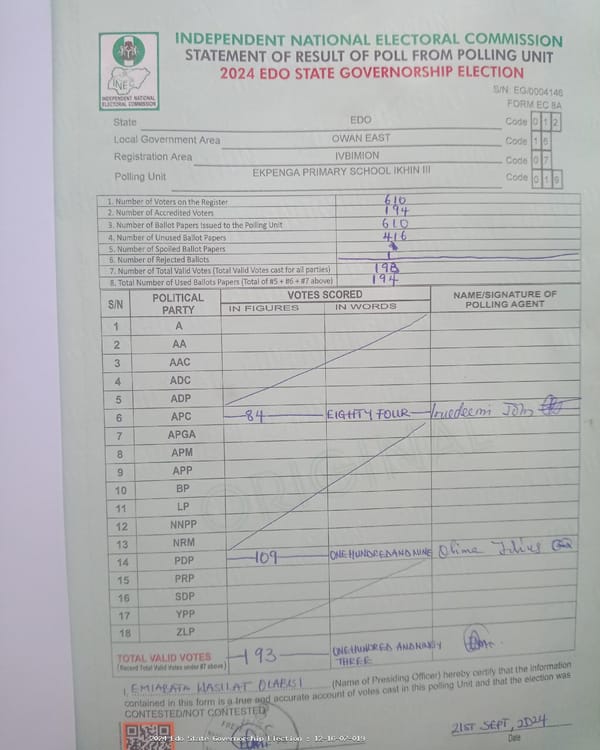 INDEPENDENT NATIONAL ELECTORAL COMMISSION
STATEMENT OF RESULT OF POLL FROM POLLING UNIT
2024 EDO STATE GOVERNORSHIP ELECTION
INEC
INDEPENDENT NATIONAL ELECTORAL COMMISSION
S/N: EG/0004146
FORM EC 8A
State EDO Code 0 1 2
Local Government Area OWAN EAST Code 1 6
Registration Area IVBIMION Code 0 7
Polling Unit EKPENGA PRIMARY SCHOOL IKHIN III Code 0 1 9
1. Number of Voters on the Register 610
2. Number of Accredited Voters 194
3. Number of Ballot Papers Issued to the Polling Unit 610
4. Number of Unused Ballot Papers 416
5. Number of Spoiled Ballot Papers
6. Number of Rejected Ballots 1
7. Number of Total Valid Votes (Total Valid Votes cast for all parties) 193
8. Total Number of Used Ballots Papers (Total of #5 + #6 + #7 above) 194
S/N POLITICAL PARTY VOTES SCORED NAME/SIGNATURE OF POLLING AGENT
IN FIGURES IN WORDS
1 A
2 AA
3 AAC
4 ADC
5 ADP
6 APC 84 EIGHTY FOUR John
7 APGA
8 APM
9 APP
10 BP
11 LP
12 NNPP
13 NRM
14 PDP 109 ONE HUNDRED AND NINE
15 PRP
16 SDP
17 YPP
18 ZLP
ORIGINAL
TOTAL VALID VOTES 193 ONE HUNDRED AND NINTY THREE
(Record Total Valid Votes under #7 above)
I, EMIABATA WASILAT OLABISI (Name of Presiding Officer) hereby certify that the information
contained in this form is a true and accurate account of votes cast in this polling Unit and that the election was
CONTESTED/NOT CONTESTED.
21ST SEPT, 2024
Date
2024 Edo State Governorship Election : 12-16-07-019